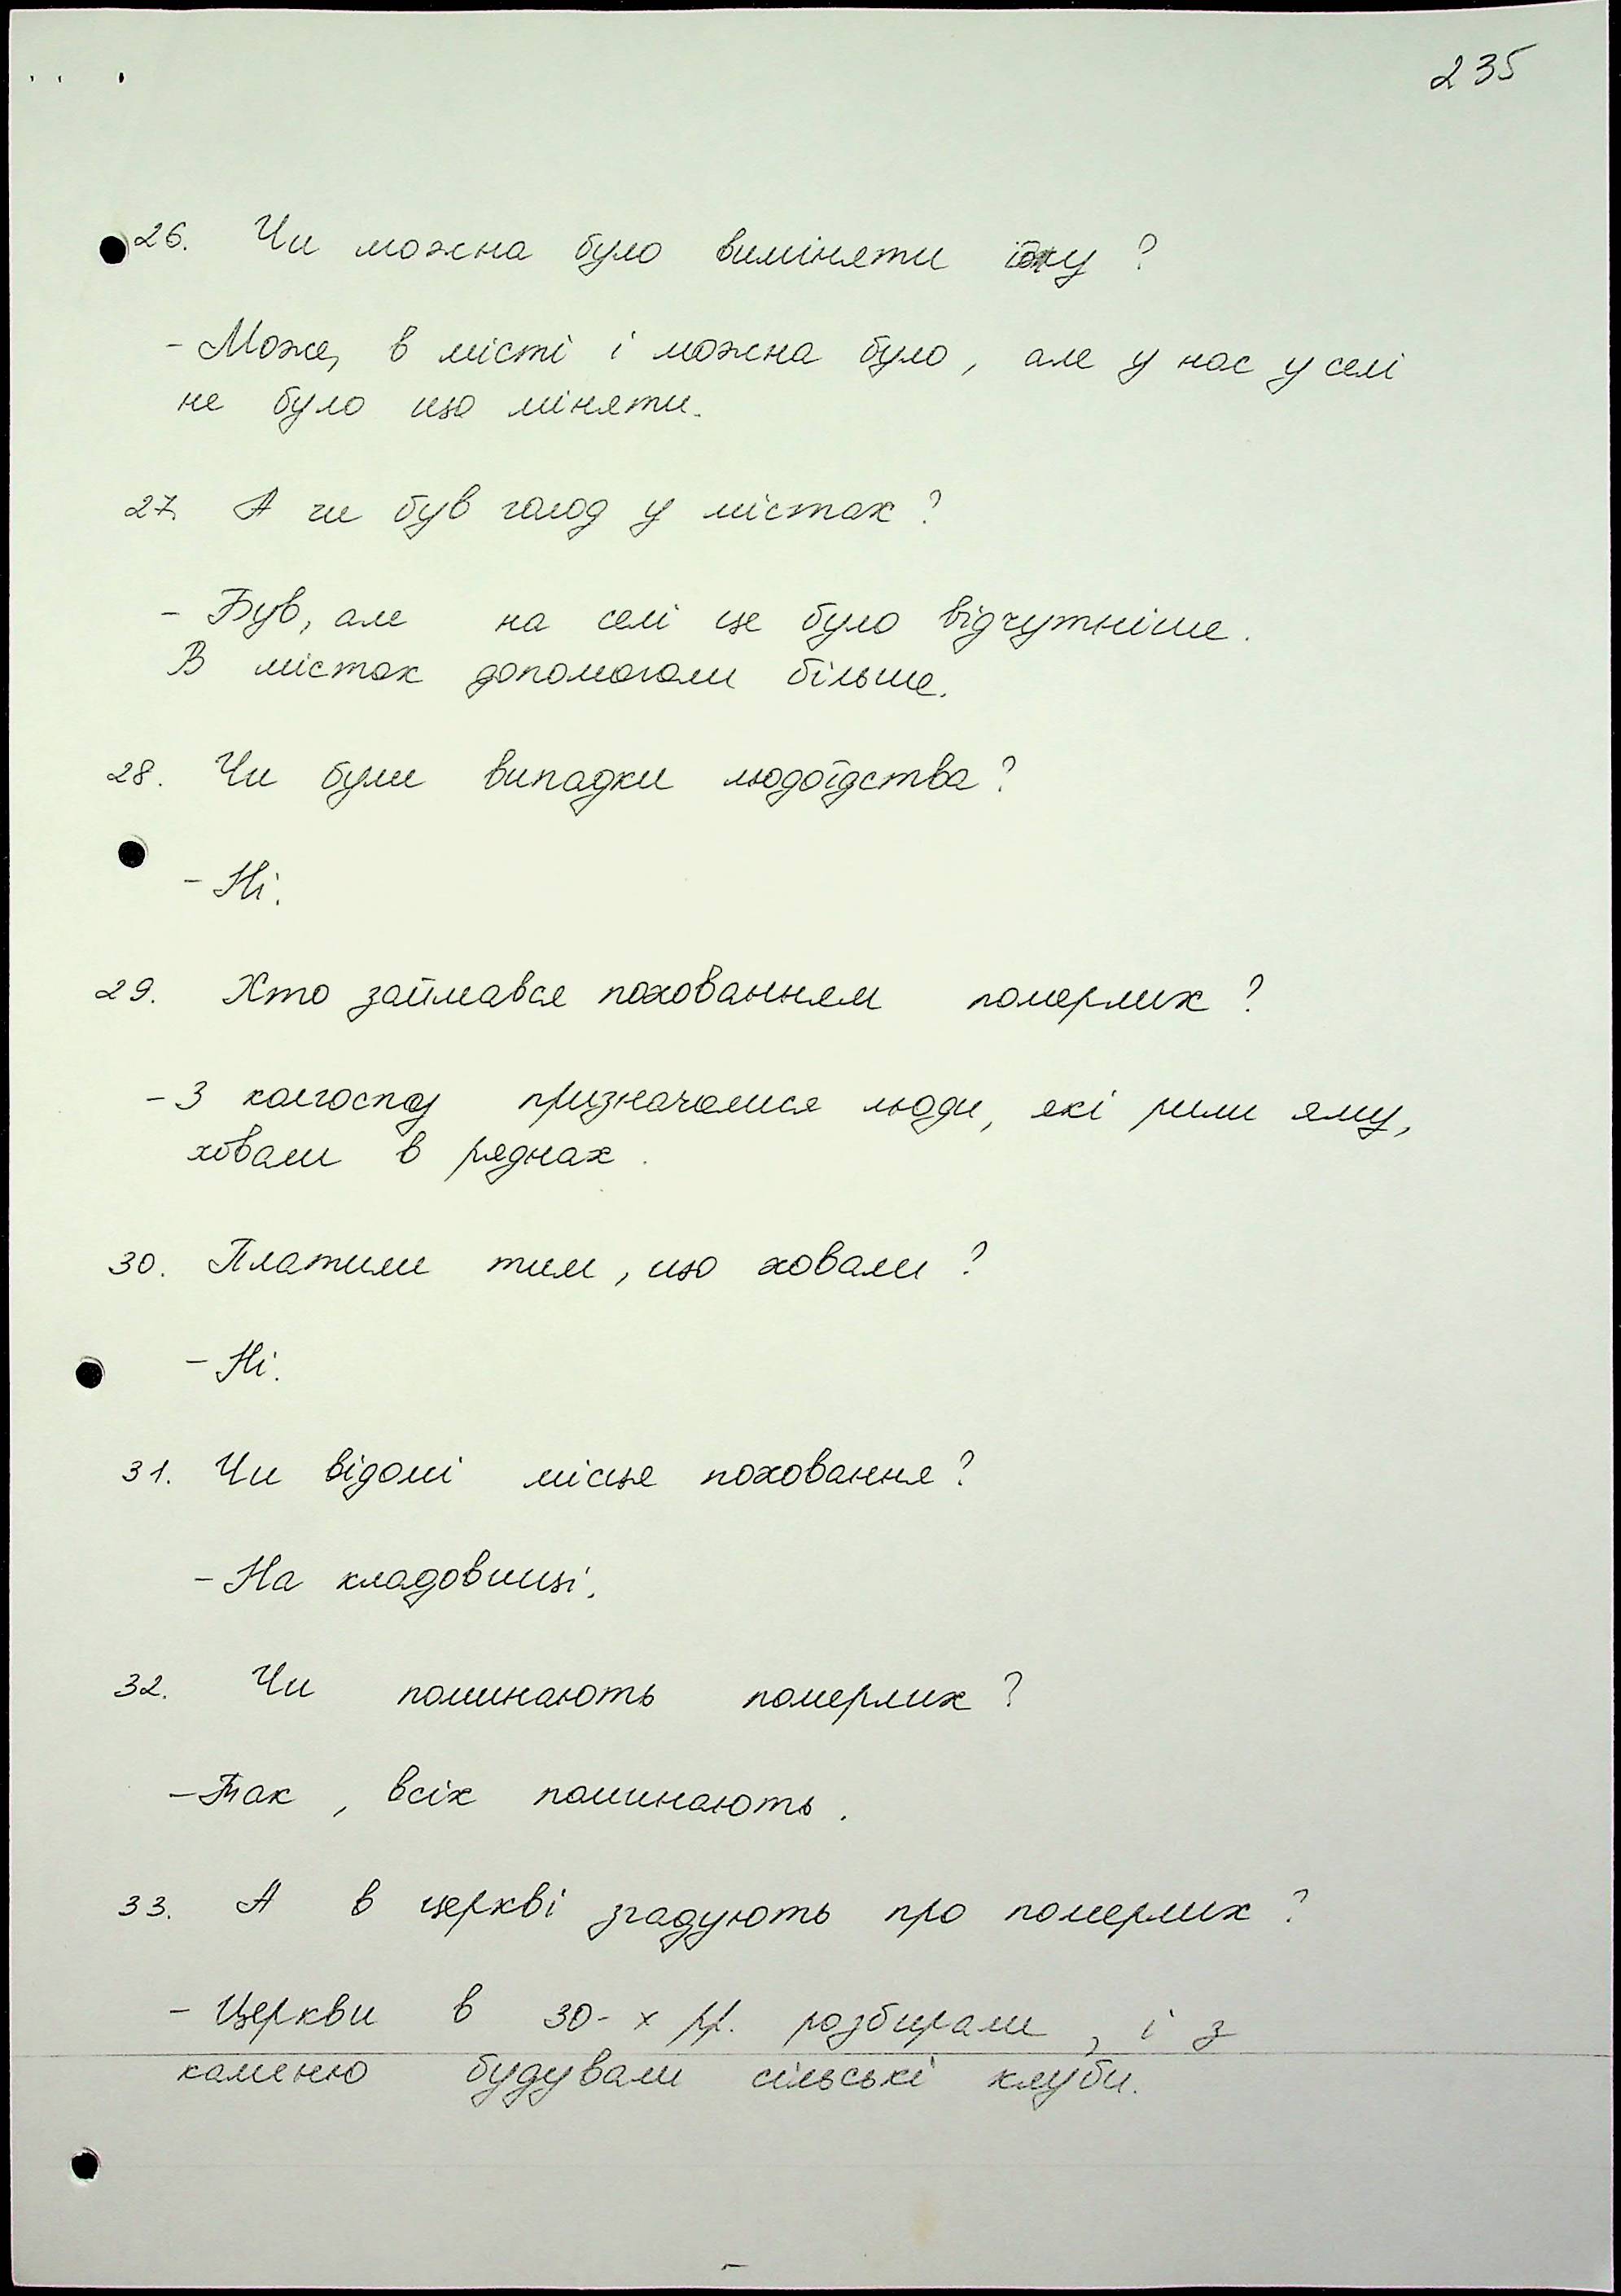 235
26. Чи можна було виміняти їжу ?
- Може, в місті і можна було, але у нас у селі
не було що міняти.
27. А чи був голод у містах ?
- Був, але на селі це було відчутніше.
В містах допомогали більше.
28. Чи були випадки людоїдства ?
- Ні.
29. Хто займався похованням померлих ?
- З колгоспу призначалися люди, які рили яму,
ховали в ряднах.
30. Платили тим, що ховали ?
- Ні.
31. Чи відомі місця поховання ?
- На кладовищі.
32. Чи поминають померлих ?
- Так, всіх поминають.
33. А в церкві згадують про померлих ?
- Церкви в 30-х рр. розбирали, і з
каменю будували сільські клуби.